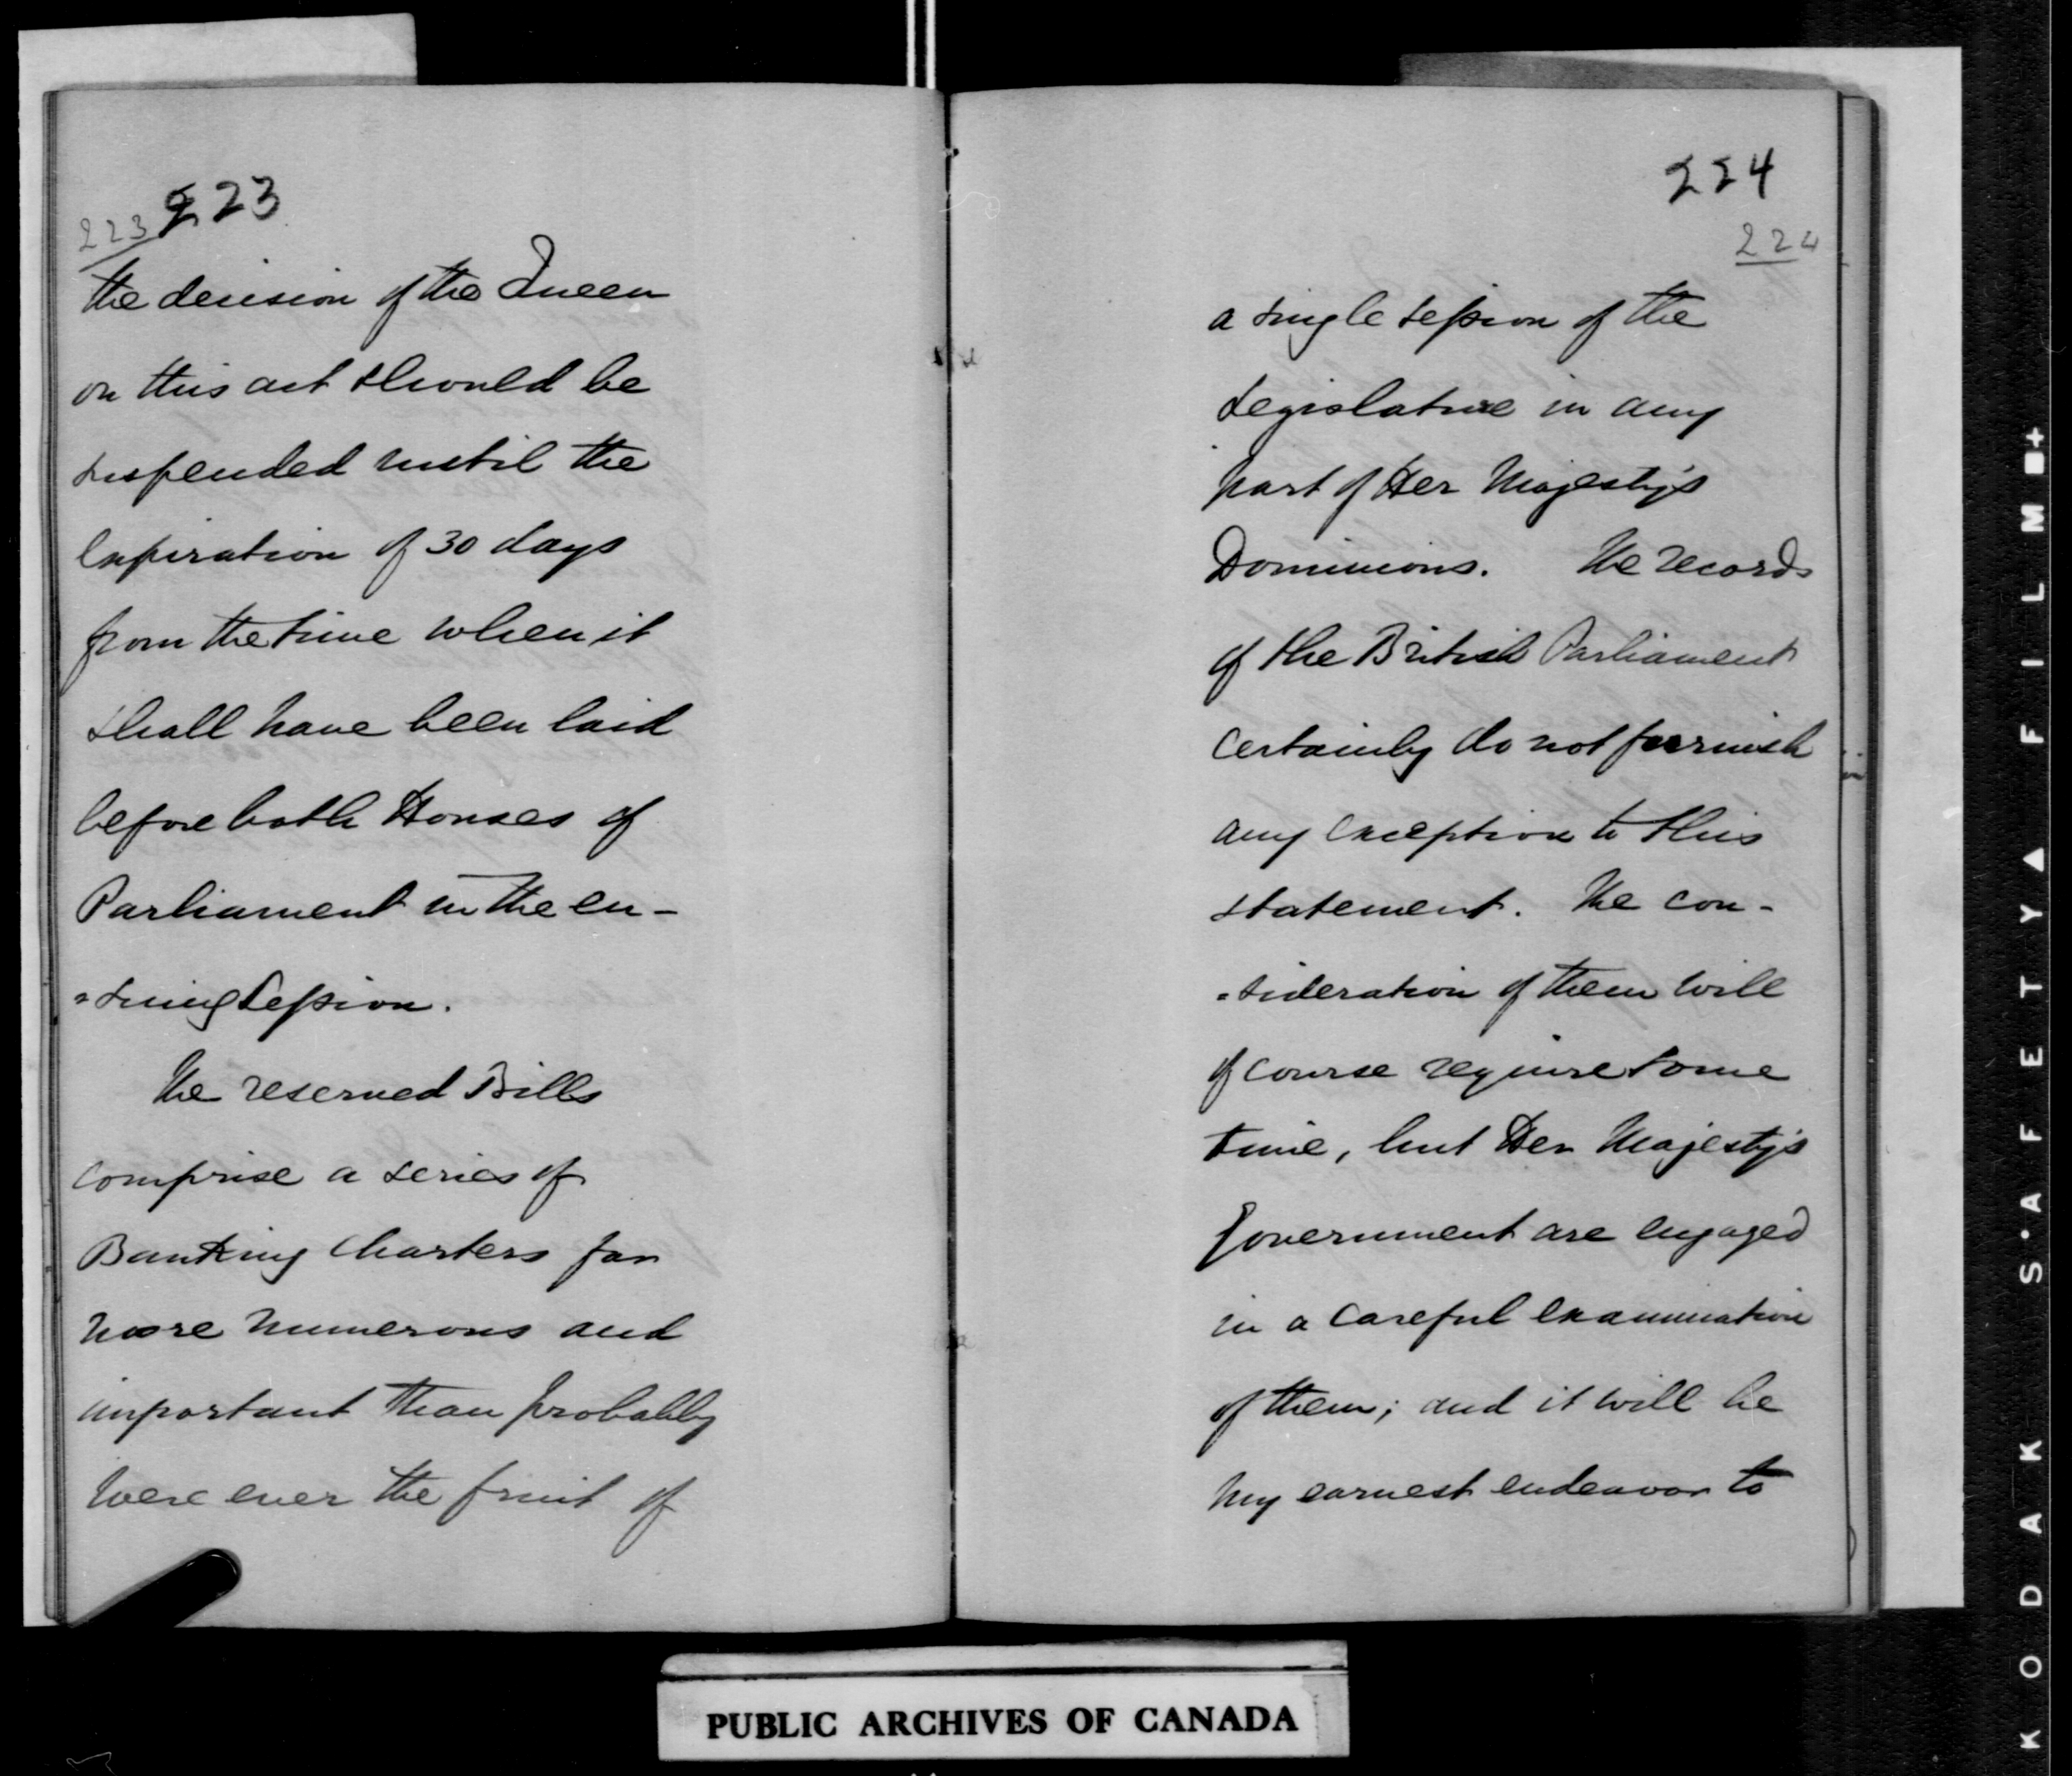 223
223
the decision of the Queen
on this act should be
suspended until the
Expiration of 30 days
from the time when it
shall have been laid
before both Houses of
Parliament in the en-
=suing Session.
The reserved Bills
comprise a series of
Banking Charters far
more numerous and
important than probably
were ever the fruit of
224
224
a single session of the
Legislature in any
part of Her Majesty's
Dominions. The records
of the British Parliament
certainly do not furnish
any exception to this
statement. The con-
=sideration of them will
of course require some
time, but Her Majesty's
Government are engaged
in a careful examination
of them; and it will be
my earnest endeavor to
PUBLIC ARCHIVES OF CANADA
KODAK SAFETY FILM